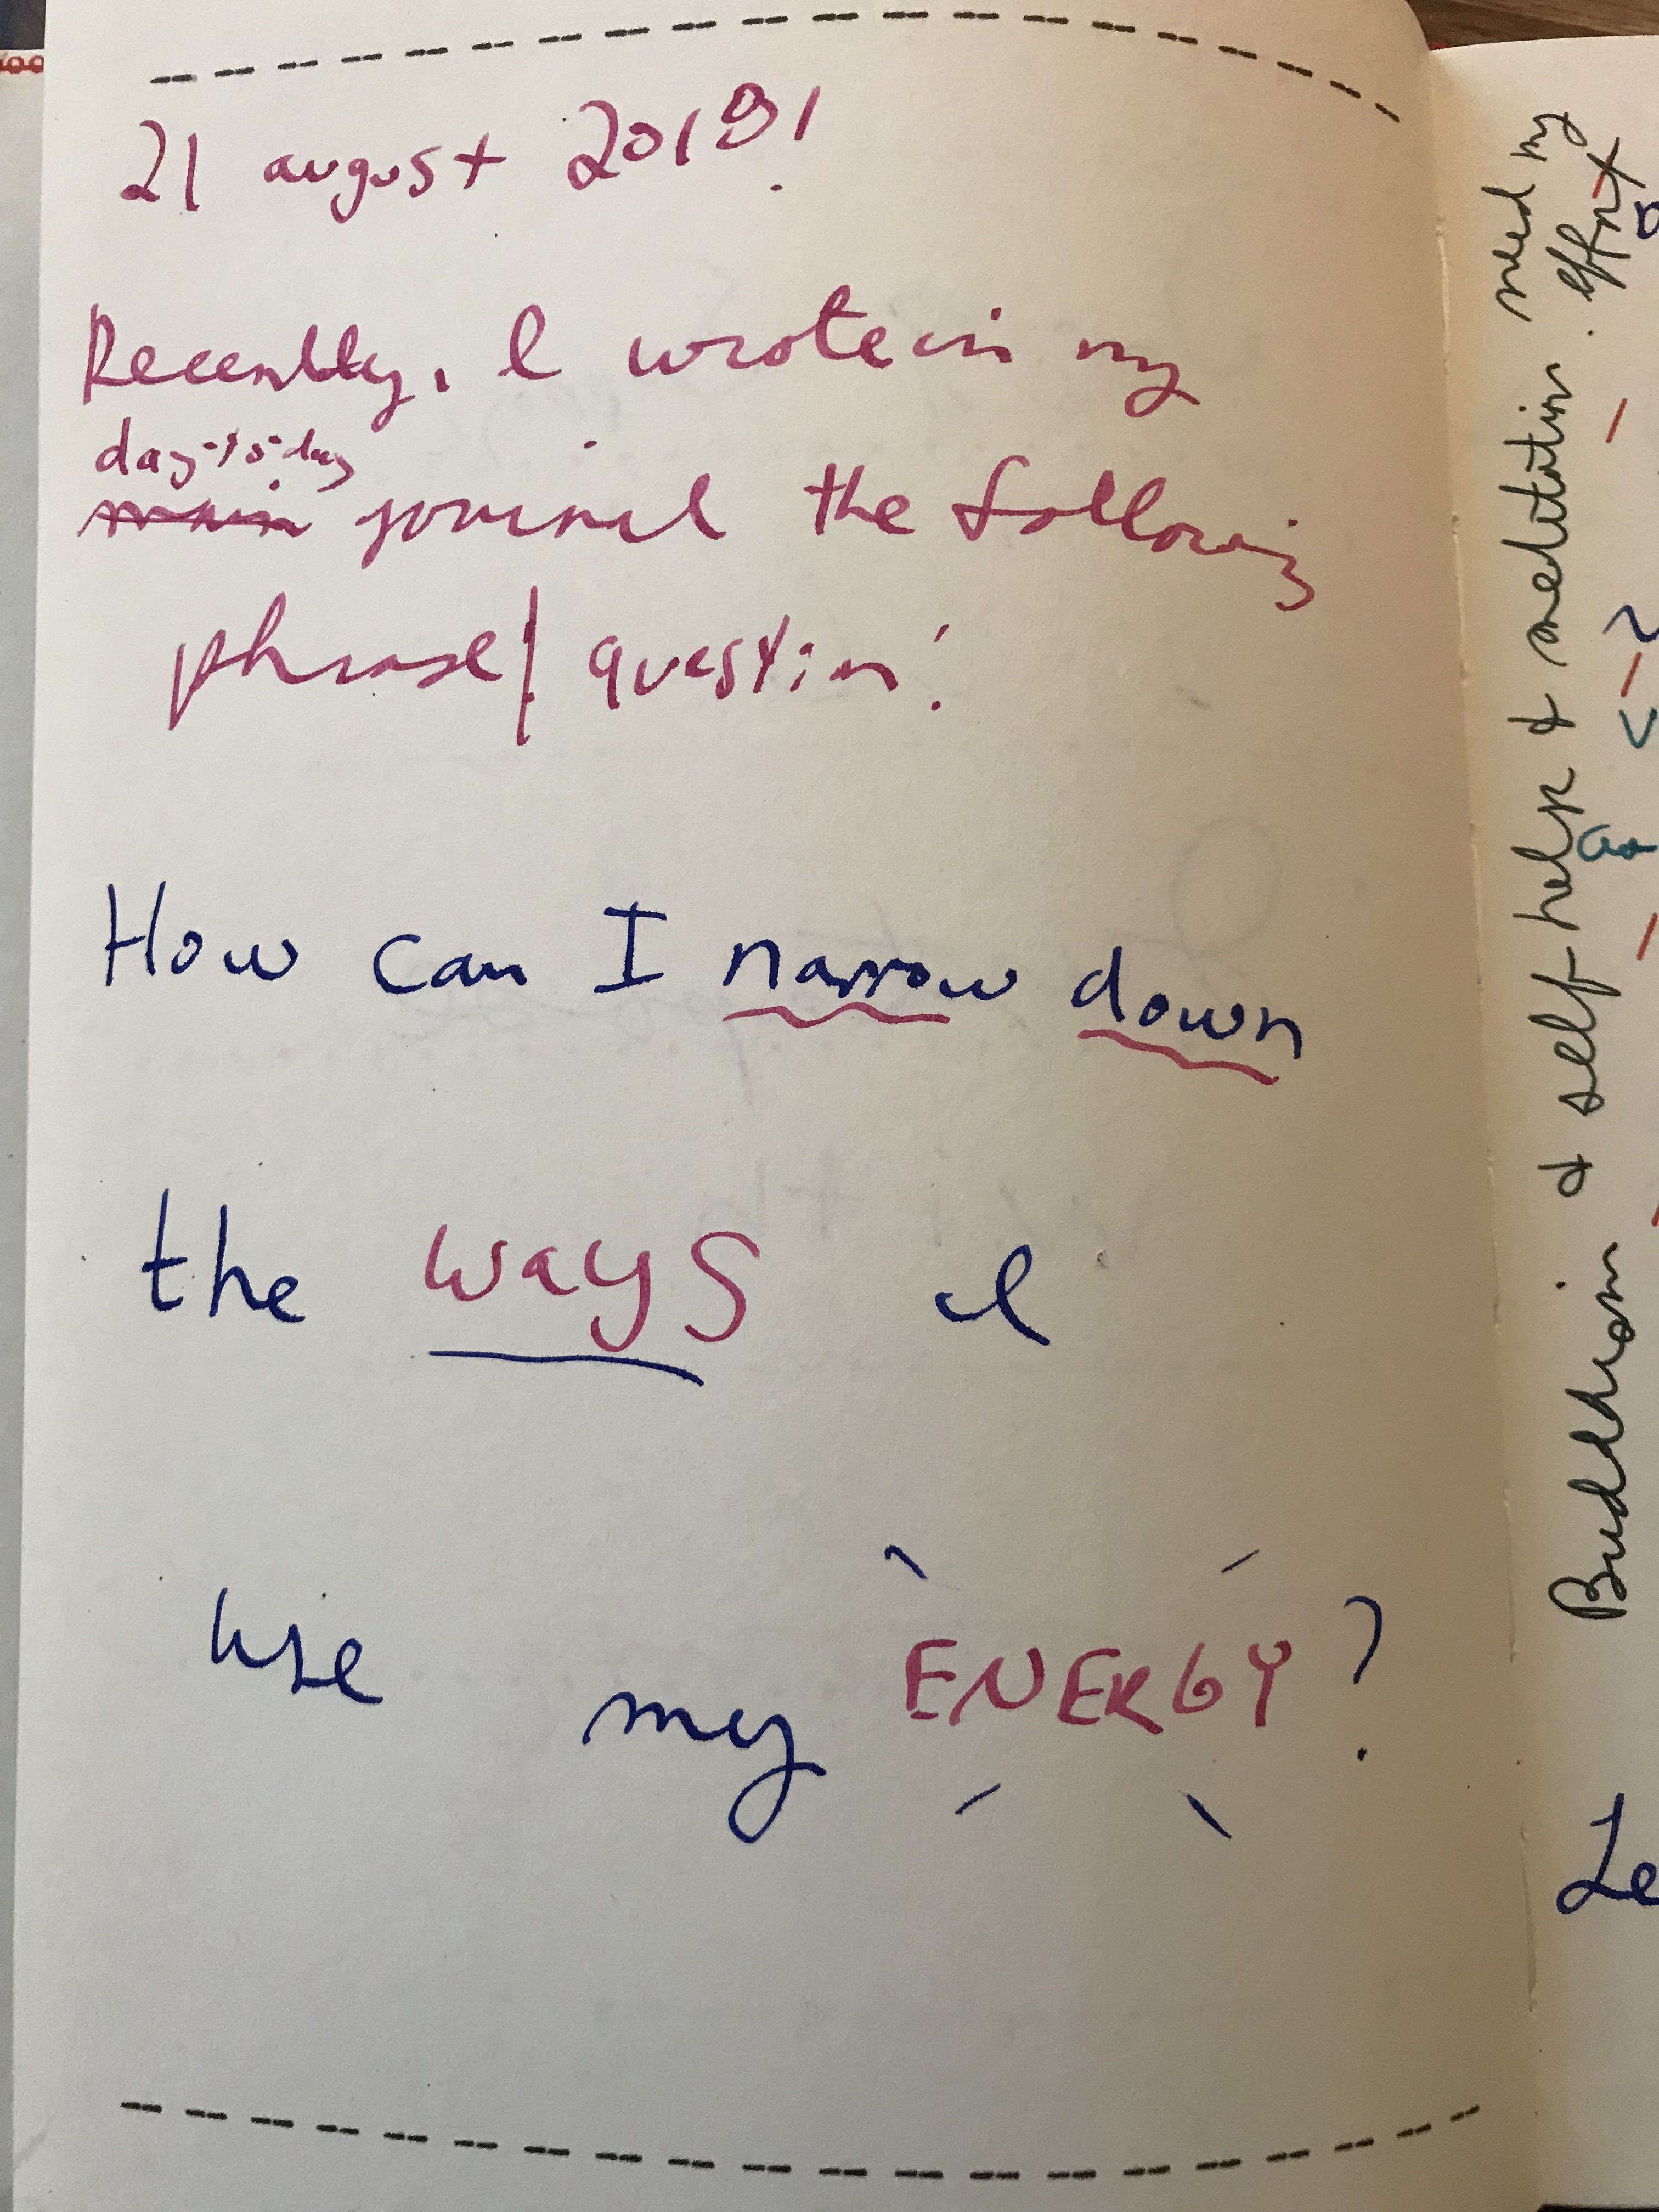 21 august 2018!
Recently, I wrote in my
day-to-day
main journal the following
phrase/question:
How can I narrow down
the ways I
use my ENERGY?
Buddhism & self help & meditation. need my
effort
Le